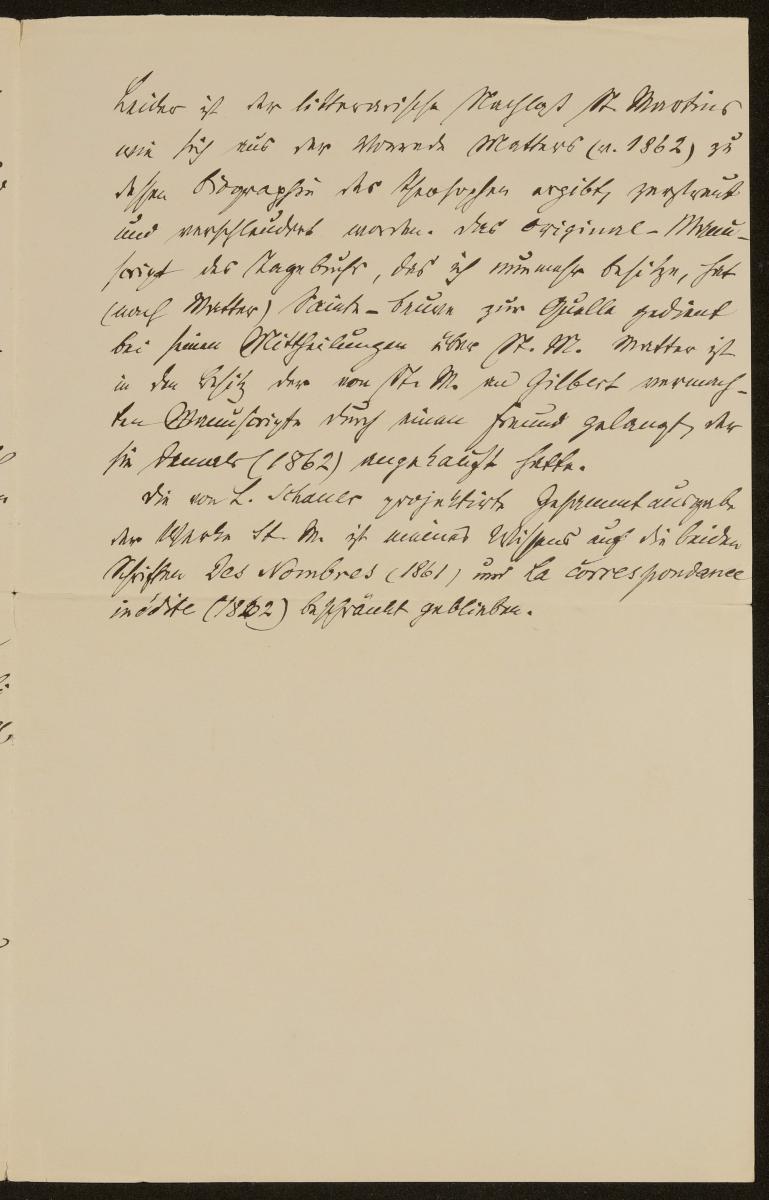 Leider ist der litterarische Nachlaß St. Martins
wie sich aus der Vorrede Matters (v. 1862) zu
dessen Biographie des Theosophen ergibt, zerstreut
und verschleudert worden. Das Original-Manu-
script des Tagebuchs, das ich nunmehr besitze, hat
(nach Matter) Sainte-Beuve zur Quelle gedient
bei seinen Mittheilungen über St. M. Matter ist
in den Besitz der von St. M. an Gilbert vermach-
ten Manuscripte durch einen Freund gelangt, der
sie damals (1862) angekauft hatte.
Die von L. Schauer projektirte Gesammtausgabe
der Werke St. M. ist meines Wissens auf die beiden
Schriften Des Nombres (1861) und La correspondance
inédite (1862) beschränkt geblieben.